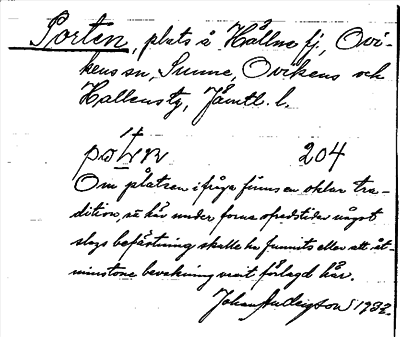 Porten, plats å Hållne fj., Ovi-
kens sn, Sunne, Ovikens och
Hallens tg, Jämtl. l.
204
Om platsen i fråga finns en oklar tra-
dition, att här under forna ofredstider något
slags befästning skulle ha funnits eller att åt-
minstone bevakning varit förlagd här.
Johan 1932.